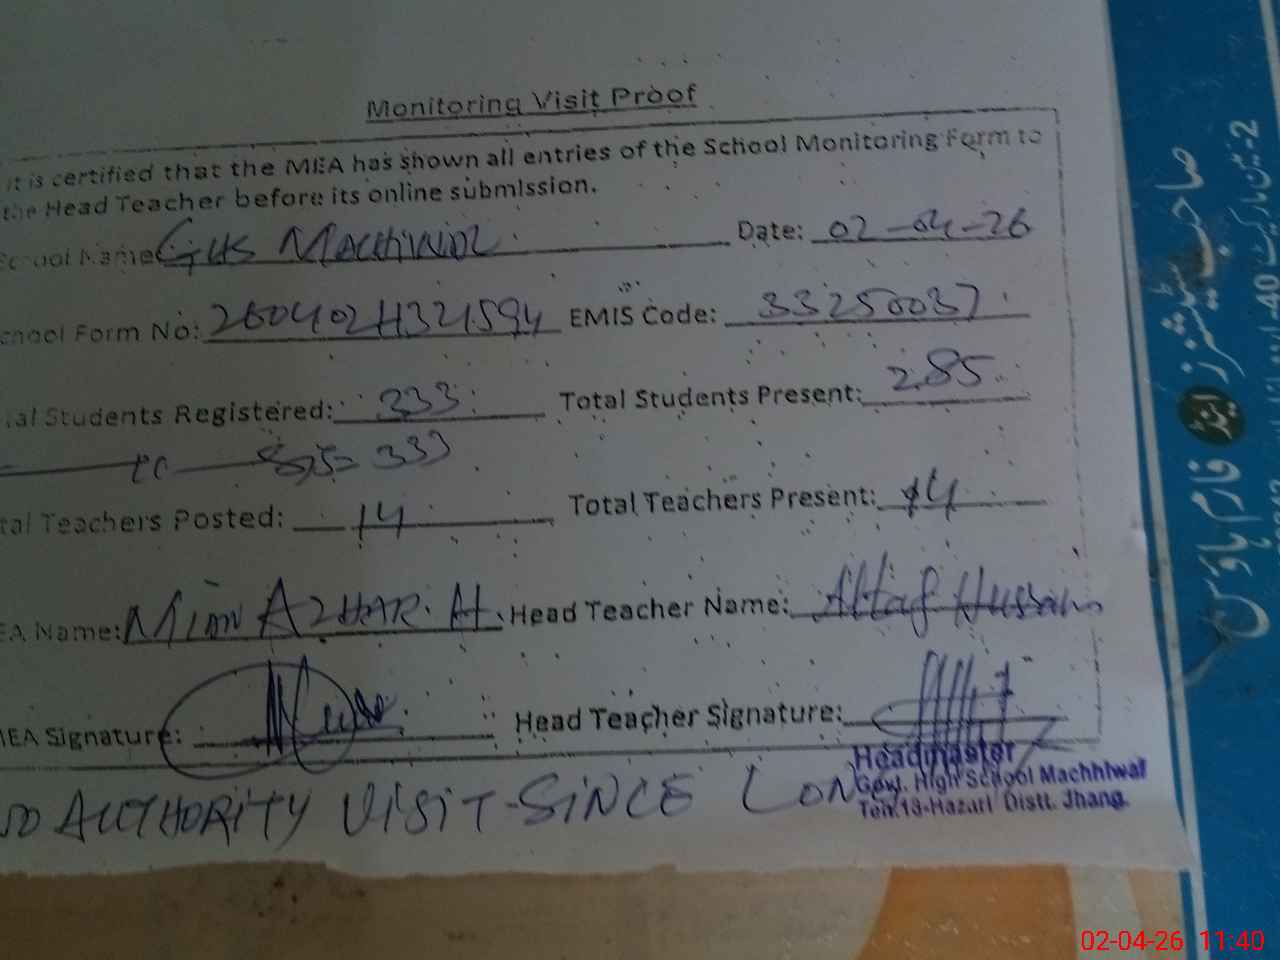 Monitoring Visit Proof
it is certified that the MEA has shown all entries of the School Monitoring Form to
the Head Teacher before its online submission.
School Name GHS Machhiwal Date: 02-04-26
chool Form No: 26040211321594 EMIS Code: 33250037
tal Students Registered: 333 Total Students Present: 285
333
tal Teachers Posted: 14 Total Teachers Present: 14
EA Name: Mian AZHAR. H. Head Teacher Name: Altaf Hussain
MEA Signature: Head Teacher Signature:
Headmaster
Govt. High School Machhiwal
Teh. 18-Hazari Distt. Jhang.
AUTHORITY VISIT SINCE LONG
صاحب سٹیشنرز اینڈ فارم ہاؤس
02-04-26 11:40